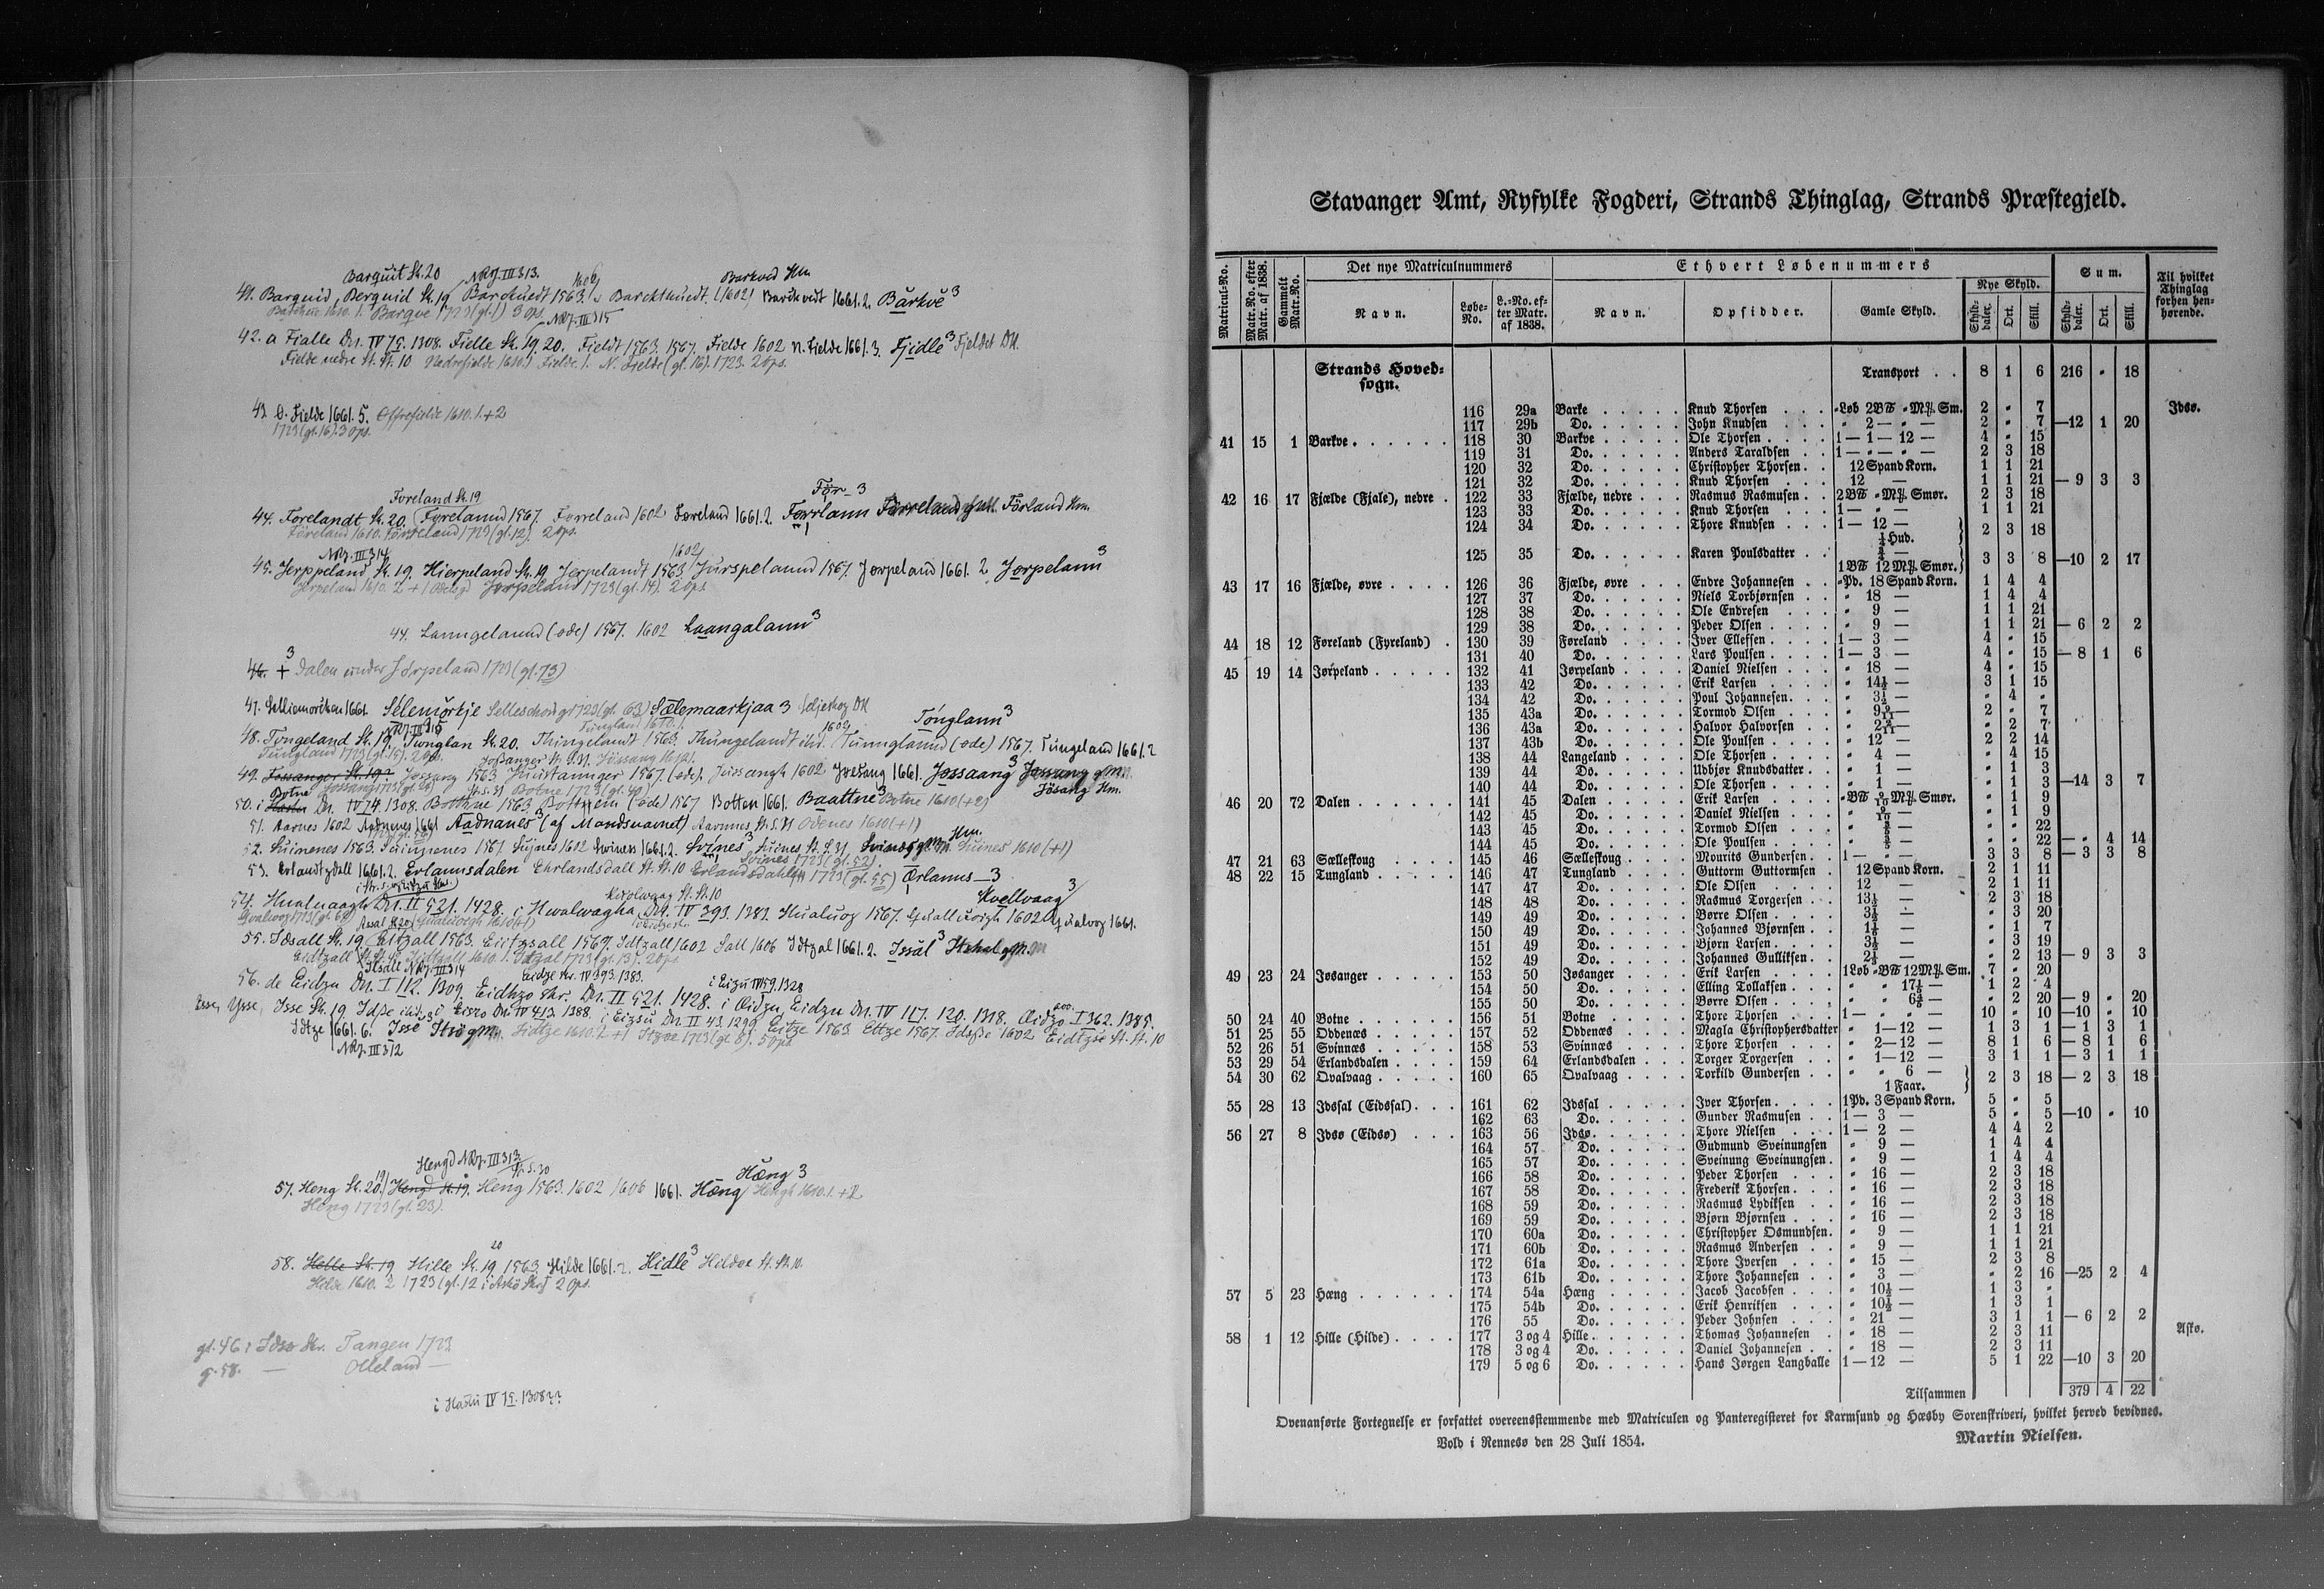 Barquit St. 20 NRJ. III 313. 1602 Barkved Hm
41. Barquid, Berquid St. 19 Barckuedt 1563. Barckthuedt (1602) Barckvedt 1661.2. Barkve 3
Barque 1723 (gl. 1) 3 ops. NRJ. III 315
42. a Fialle Dn. IV 75. 1308. Fielle St. 19 20. Fieldt 1563. 1567. Fielde 1602 N. Fielde 1661. 3. Fjidle 3 Fjeldet DM.
Fielde nedre St. St. 10 Nedrefielde 1610. 1 Fielde 1. N. Fielde (gl. 16). 1723. 2 ops.
43. O. Fielde 1661. 5. Øffrefielde 1610. 1. + 2
1723 (gl. 16) 3 ops.
Foreland St. 19 Før- 3
44. Forelandt St. 20. Fyrelannd 1567. Forreland 1602 Føreland 1661. 2. Førlann Førland Hm.
Føreland 1610. Førreland 1723 (gl. 12). 2 ops.
NRJ. III 314 1602
45. Jerppeland St. 19. Hierpeland St. 19 Jerpelandt 1563 Jurspelannd 1567. Jørpeland 1661. 2 Jørpelann 3
Jørpeland 1723 (gl. 14). 2 ops
44. Lanngelannd (øde) 1567. 1602 Laangalann 3
46. + 3 Dalen under Jørpeland 1723 (gl. 73)
47. Selliemorcken 1661. Selemørkje Selleschoug 1723 (gl. 63) Sælemaarkjaa 3 Seljeskog DM
NRJ. III 315 Tungland 1610. 1. 1602 Tónglann 3
48. Tongeland St. 19. Tunglan St. 20. Thingelandt 1563. Thungelandt ibd. Tunnglannd (øde) 1567. Tungeland 1661. 2
Tungland 1723 (gl. 15). 2 ops. Jossanger St. S. 31 Jossang 1612
49. Jossanger St. 19? Jossang 1563 Juustannger 1567. (øde). Jussangh 1602 Jossang 1661. Jossaang 3 Jøsang Hm.
Botne Jossang 1723 (gl. 24) St. S. 31 Botne 1723 (gl. 40)
50. i Dn. IV 74. 1308. Botthne 1563 Bottnem (øde) 1567 Botten 1661. Baattne 3 Botne 1610 (+2)
51. Aarnes 1602 Aadnenes 1661 Aadnanes 3 (af Mandsnavnet) Aarnnes St. S. 31 Odenes 1610 (+1)
52. Suinenes 1563. Suinnenes 1567 Suynes 1602 Svines 1661. 2. Svines 3 Suines St. S. 31 Hm. Suines 1610 (+1)
Svines 1723 (gl. 52)
53. Erlandzdall 1661. 2. Erlannsdalen Ehrlandsdall St. St. 10 Erlandsdahlen 1723 (gl. 55) Ørlanns- 3
Kvelvaag St. St. 10 Kvellvaag 3
54. Hualuaagh Dn. II 521. 1428. i Hwalwagha Dn. IV 393. 1383. Hualuog 1567. Huallvogh 1602 Qualvog 1661.
Qvalvog 1723 (gl. 62)
55. Idsall St. 19 Eitzall 1563. Eiitzsall 1567. Idtzall 1602 Sall 1606 Idtzal 1661. 2. Issal 3
Eidtzall St. St. 10 Idtzall 1610. 1. Idzal 1723 (gl. 13). 2 ops
Itsall NRJ. III 314 Eidze skr. IV 393. 1383. i Eizu IV 59. 1328
56. de Eidzu Dn. I 112. 1309. Eidhzo skr. Dn. II 521. 1428. i Œidzu, Eidzu Dn. IV 117. 120. 1318. Œidzo I 362. 1385.
Esse, Ysse, Isse St. 19 Idsse ibid. i Eiszo Dn. IV 413. 1388. i Eizsu Dn. II 43. 1299 Eitze 1563. Ettze 1567. Idsse 1602 Eidtzse St. St. 10
Idtze 1661. 6. Isse 3 Idtze 1610. 2 + 1 Itzøe 1723 (gl. 8). 5 ops
NRJ. III 312
Hengd NRJ. III 313 St. S. 30 Hæng 3
57. Heng St. 20. Hengd St. 19. Heng 1563. 1602 1606 1661. Hæng Hengh 1610. 1. + 2
Heng 1723 (gl. 23).
58. Helle St. 19 Hille St. 19 20 1563. Hilde 1661. 2. Hidle 3 Hildøe St. St. 10.
Hilde 1610. 2 1723 (gl. 12 i Askø Skr) 2 ops.
gl. 46 i Idsø Skr. Tangen 1723
g. 58. — Olleland —
i Hastu IV 75. 1308??
Stavanger Amt, Ryfylke Fogderi, Strands Thinglag, Strands Præstegjeld.
Matricul-No. Matr.No. efter Matr. af 1838. Gammelt Matr.No. Det nye Matriculnummers Ethvert Løbenummers Sum. Til hvilket Thinglag forhen henhørende.
Navn. Løbe-No. L.-No. efter Matr. af 1838. Navn. Opsidder. Gamle Skyld. Nye Skyld. Skylddaler. Ort. Skill. Skylddaler. Ort. Skill.
Strands Hovedsogn. Transport . . 8 1 6 216 " 18
116 29a Barke Knud Thorsen "Løb 2BPd "Mk Sm. 2 " 7 Idsø.
117 29b Do. John Knudsen " 2 — " — 2 " 7 —12 1 20
41 15 1 Barkve 118 30 Barkve Ole Thorsen 1 — 1 — 12 — 4 " 15
119 31 Do. Anders Taraldsen 1 — " — " — 2 3 18
120 32 Do. Christopher Thorsen 12 Spand Korn. 1 1 21
121 32 Do. Knud Thorsen 12 — 1 1 21 — 9 3 3
42 16 17 Fjælde (Fjale), nedre 122 33 Fjælde, nedre Rasmus Rasmusen 2BPd "Mk Smør. 2 3 18
123 33 Do. Knud Thorsen 1 — " — 1 1 21
124 34 Do. Thore Knudsen 1 — 12 — ¼ Hud. 2 3 18
125 35 Do. Karen Poulsdatter ¾ — 1BPd 12Mk Smør. 3 3 8 —10 2 17
43 17 16 Fjælde, øvre 126 36 Fjælde, øvre Endre Johannesen "Pd. 18 Spand Korn. 1 4 4
127 37 Do. Niels Torbjørnsen " 18 — 1 4 4
128 38 Do. Ole Endresen " 9 — 1 1 21
129 38 Do. Peder Olsen " 9 — 1 1 21 — 6 2 2
44 18 12 Føreland (Fyreland) 130 39 Føreland Iver Ellefsen 1 — 3 — 4 " 15
131 40 Do. Lars Poulsen 1 — 3 — 4 " 15 — 8 1 6
45 19 14 Jørpeland 132 41 Jørpeland Daniel Nielsen " 18 — 4 " 15
133 42 Do. Erik Larsen " 14½ — 3 1 15
134 42 Do. Poul Johannesen " 3½ — " 4 "
135 43a Do. Tormod Olsen " 9 9/11 — 2 " 7
136 43a Do. Halvor Halvorsen " 2 2/11 — " 2 7
137 43b Do. Ole Poulsen " 12 — 2 2 14
138 44 Langeland Ole Thorsen " 4 — " 4 15
139 44 Do. Udbjør Knudsdatter " 1 — " 1 3
140 44 Do. Ole Thorsen " 1 — " 1 3 —14 3 7
46 20 72 Dalen 141 45 Dalen Erik Larsen "BPd 9/10 Mk Smør. " 1 9
142 45 Do. Daniel Nielsen " 9/10 — " 1 9
143 45 Do. Tormod Olsen " 3/5 — " " 22
144 45 Do. Ole Poulsen " 3/5 — " " 22 — " 4 14
47 21 63 Sælleskoug 145 46 Sælleskoug Mourits Gundersen 1 — " — 3 3 8 — 3 3 8
48 22 15 Tungland 146 47 Tungland Guttorm Guttormsen 12 Spand Korn. 2 1 11
147 47 Do. Ole Olsen 12 — 2 1 11
148 48 Do. Rasmus Torgersen 13⅓ — 2 3 18
149 49 Do. Børre Olsen 3⅓ — " 3 20
150 49 Do. Johannes Bjørnsen 1⅙ — " 1 7
151 49 Do. Bjørn Larsen 3⅓ — " 3 19
152 49 Do. Johannes Gulliksen 2⅓ — " 2 13 — 9 3 3
49 23 24 Jøsanger 153 50 Jøsanger Erik Larsen 1Løb "BPd 12Mk Sm. 7 " 20
154 50 Do. Elling Tollaksen " " 17⅕ — 1 2 4
155 50 Do. Børre Olsen " " 6¾ — " 2 20 — 9 " 20
50 24 40 Botne 156 51 Botne Thore Thorsen 1 — " — " — 10 " 10 —10 " 10
51 25 55 Oddenæs 157 52 Oddenæs Magla Christophersdatter " 1—12 — 1 3 1 — 1 3 1
52 26 51 Svinnæs 158 53 Svinnæs Thore Thorsen " 2—12 — 8 1 6 — 8 1 6
53 29 54 Erlandsdalen 159 64 Erlandsdalen Torger Torgersen " 1—12 — 3 1 1 — 3 1 1
54 30 62 Qvalvaag 160 65 Qvalvaag Torkild Gundersen " " 6 — 1 Faar. 2 3 18 — 2 3 18
55 28 13 Idssal (Eidssal) 161 62 Idssal Iver Thorsen 1Pd. 3 Spand Korn. 5 " 5
162 63 Do. Gunder Rasmusen 1 — 3 — 5 " 5 —10 " 10
56 27 8 Idsø (Eidsø) 163 56 Idsø Thore Nielsen 1 — 2 — 4 4 2
164 57 Do. Gudmund Sveinungsen " 9 — 1 4 4
165 57 Do. Sveinung Sveinungsen " 9 — 1 4 4
166 58 Do. Peder Thorsen " 16 — 2 3 18
167 58 Do. Frederik Thorsen " 16 — 2 3 18
168 59 Do. Rasmus Lydiksen " 16 — 2 3 18
169 59 Do. Bjørn Bjørnsen " 16 — 2 3 18
170 60a Do. Christopher Osmundsen " 9 — 1 1 21
171 60b Do. Rasmus Andersen " 9 — 1 1 21
172 61a Do. Thore Iversen " 15 — 2 3 8
173 61b Do. Thore Johannesen " 3 — " 2 16 —25 2 4
57 5 23 Hæng 174 54a Hæng Jacob Jacobsen " 10½ — 1 3 "
175 54b Do. Erik Henriksen " 10½ — 1 3 1
176 55 Do. Peder Johnsen " 21 — 3 1 1 — 6 2 2
58 1 12 Hille (Hilde) 177 3 og 4 Hille Thomas Johannesen " 18 — 2 3 11 Askø.
178 3 og 4 Do. Daniel Johannesen " 18 — 2 3 11
179 5 og 6 Do. Hans Jørgen Langballe 1 — 12 — 5 1 22 —10 3 20
Tilsammen 379 4 22
Ovenanførte Fortegnelse er forfattet overeensstemmende med Matriculen og Panteregisteret for Karmsund og Hæsby Sorenskriveri, hvilket herved bevidnes.
Vold i Rennesø den 28 Juli 1854. Martin Nielsen.